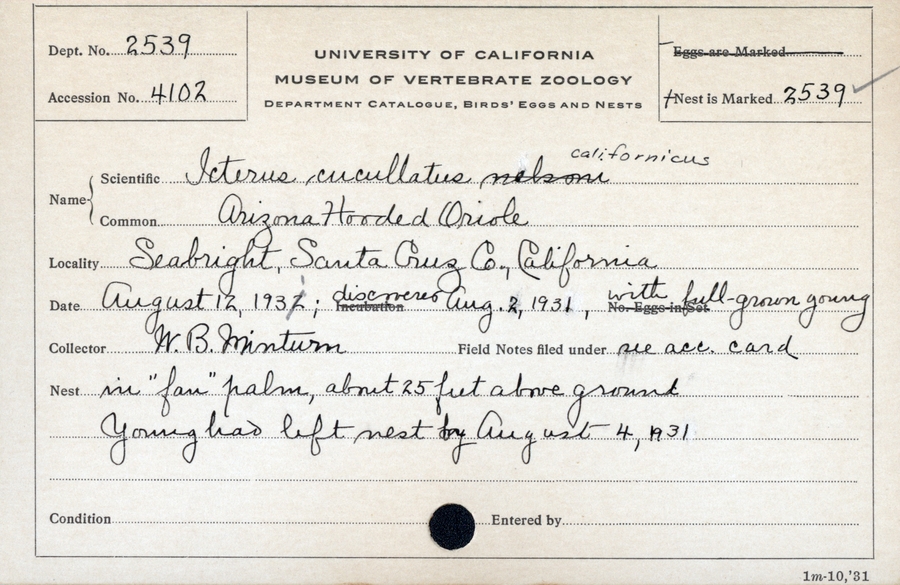 Dept. No. 2539
Accession No. 4102
UNIVERSITY OF CALIFORNIA
MUSEUM OF VERTEBRATE ZOOLOGY
DEPARTMENT CATALOGUE, BIRDS' EGGS AND NESTS
Eggs are Marked
Nest is Marked 2539
californicus
Name Scientific Icterus cucullatus nelsoni
Common Arizona Hooded Oriole
Locality Seabright, Santa Cruz Co., California
Date August 12, 1931; Incubation discovered Aug. 2, 1931, No. Eggs in Set with full-grown young
Collector W. B. Minturn Field Notes filed under see acc. card
Nest in "fan" palm, about 25 feet above ground
Young had left nest by August 4, 1931
Condition Entered by
1m-10,'31